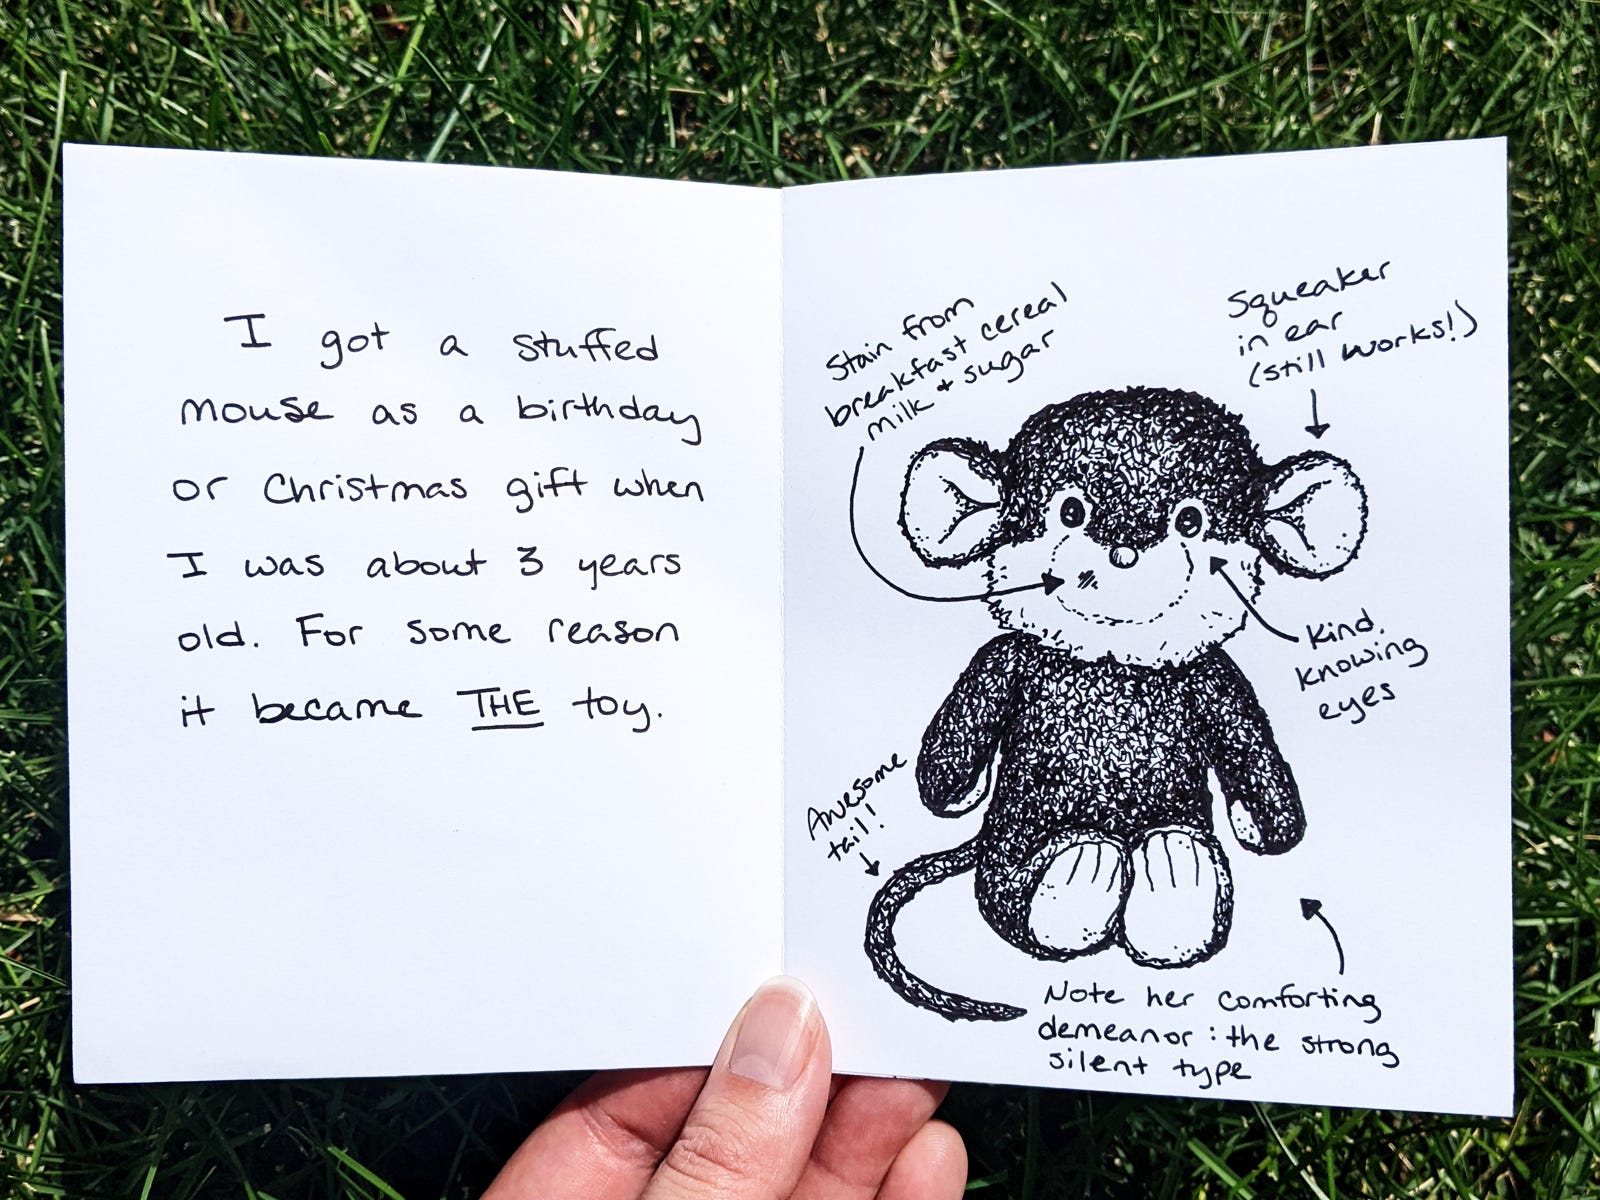 I got a stuffed
mouse as a birthday
or Christmas gift when
I was about 3 years
old. For some reason
it became THE toy.
Stain from
breakfast cereal
milk + sugar
Squeaker
in ear
(still works!)
Kind,
knowing
eyes
Awesome
tail!
Note her comforting
demeanor: the strong
silent type